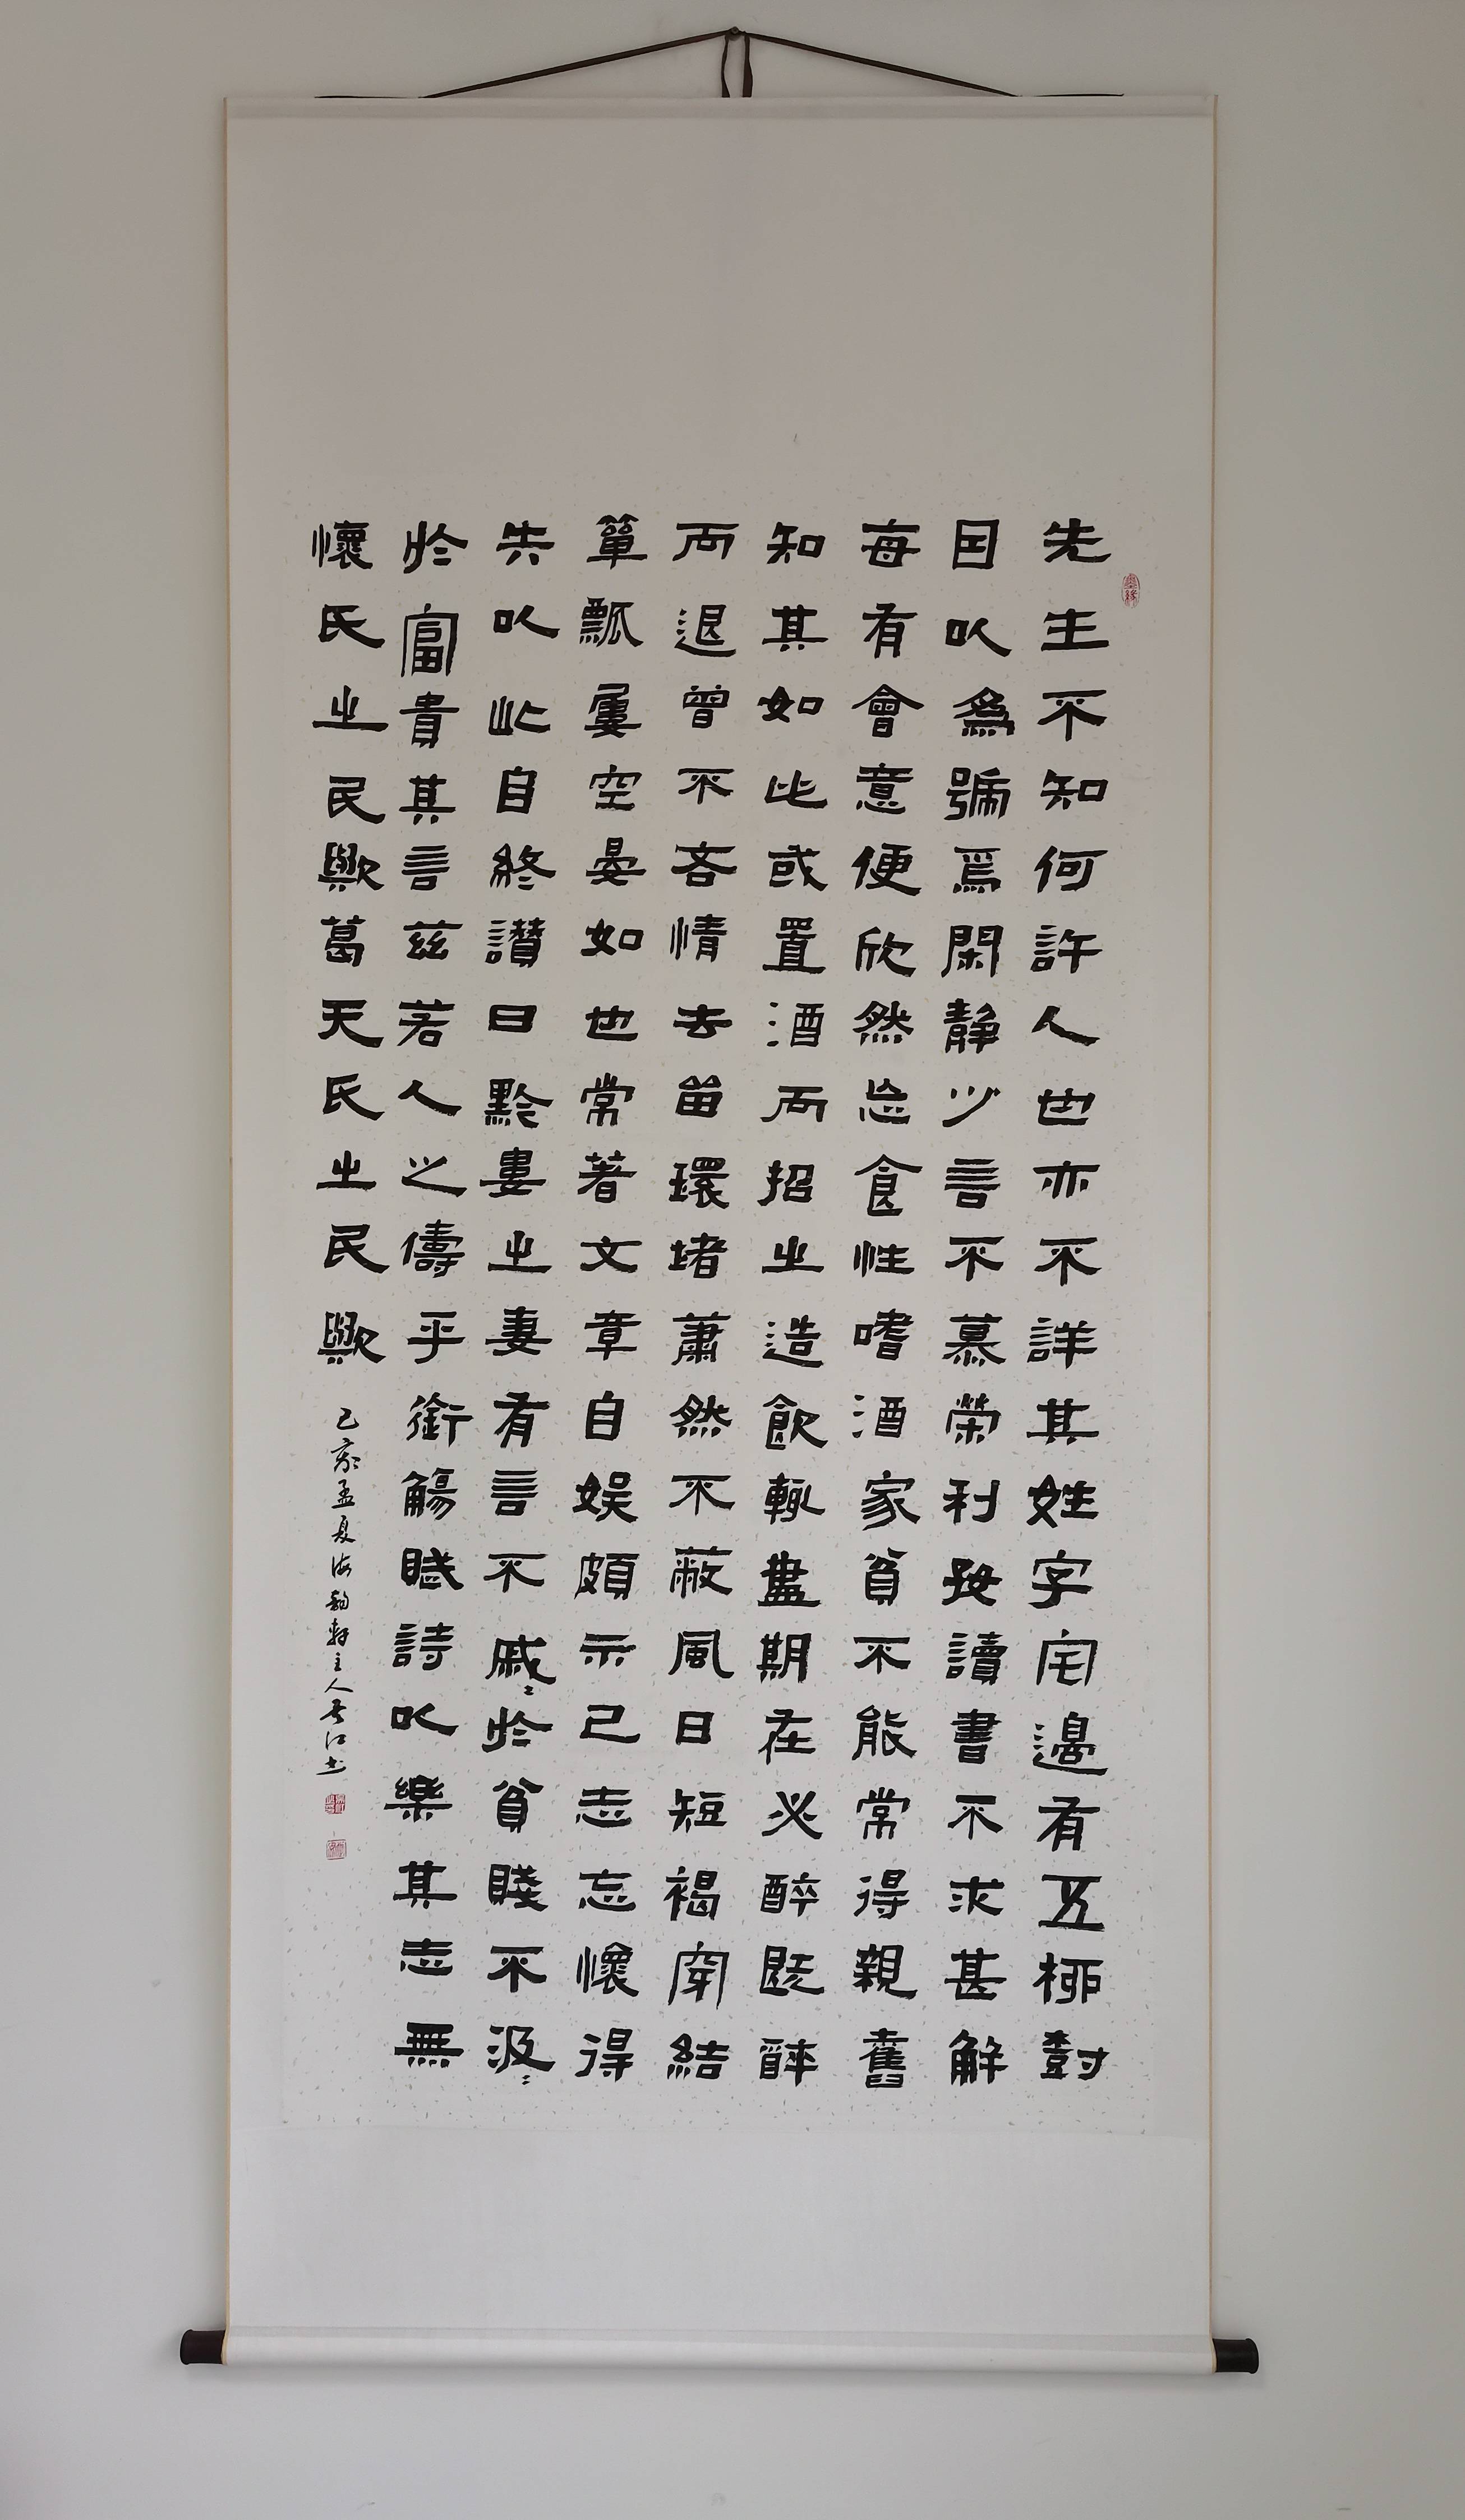 先生不知何許人也亦不詳其姓字宅邊有五柳樹
因以為號焉閑靜少言不慕榮利好讀書不求甚解
每有會意便欣然忘食性嗜酒家貧不能常得親舊
知其如此或置酒而招之造飲輒盡期在必醉既醉
而退曾不吝情去留環堵蕭然不蔽風日短褐穿結
簞瓢屢空晏如也常著文章自娛頗示己志忘懷得
失以此自終讚曰黔婁之妻有言不戚〻於貧賤不汲〻
於富貴其言茲若人之儔乎銜觴賦詩以樂其志無
懷氏之民歟葛天氏之民歟
己亥孟夏海韵軒主人長江书
墨緣